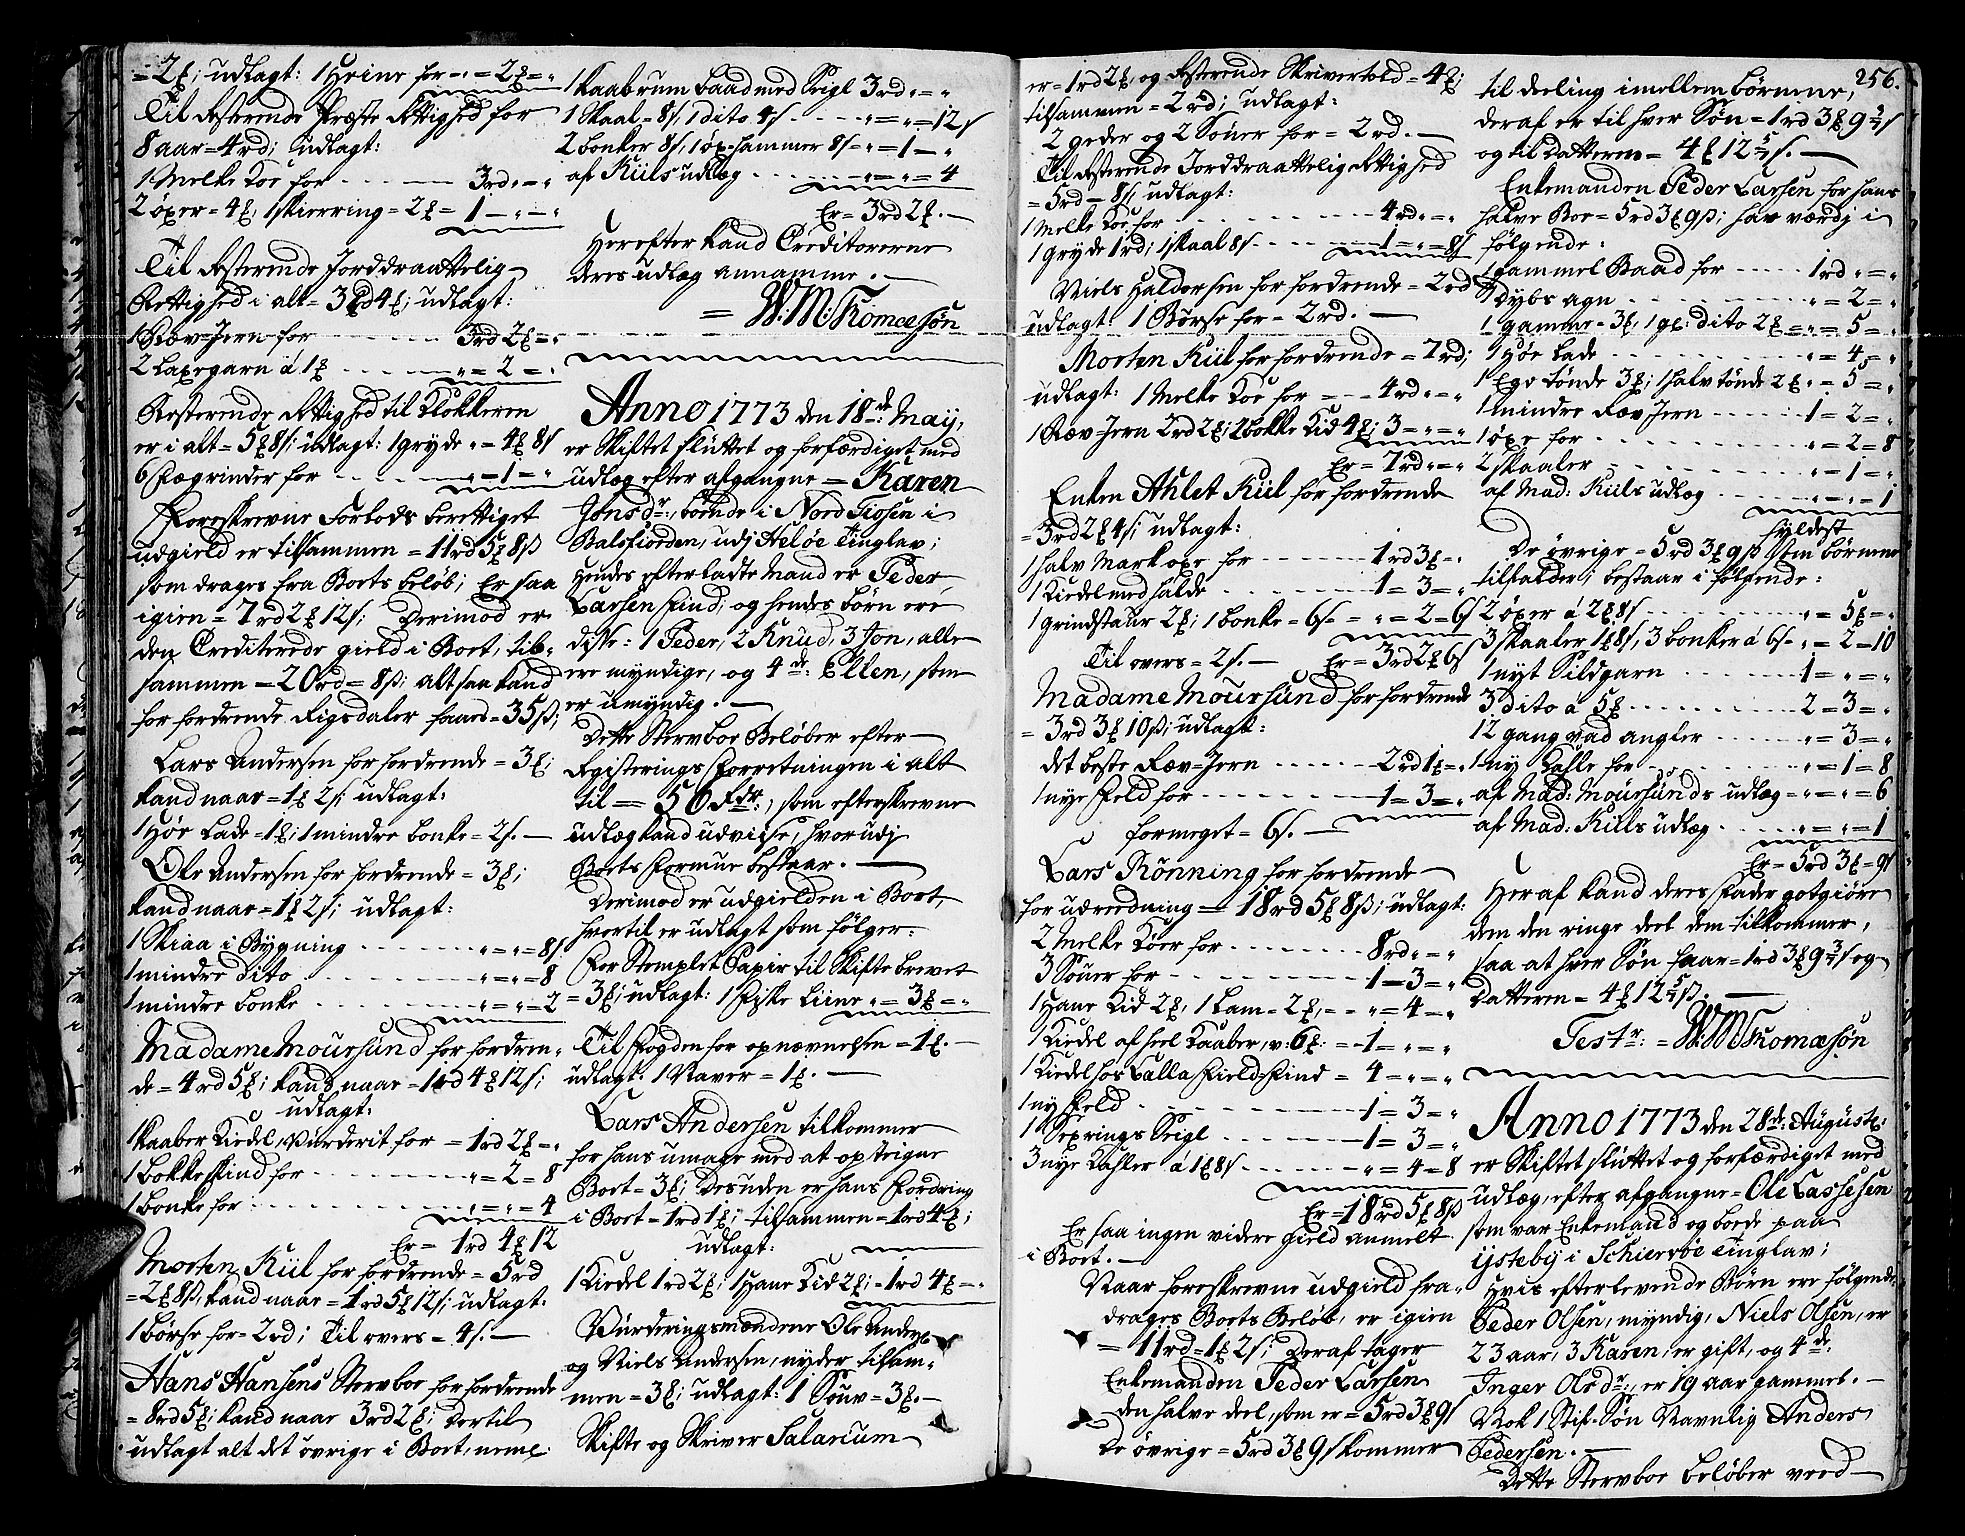 = 2 ƺ; udlagt: 1 Heine for „ = 2 ƺ = „
Til Resterende Præste Rettighed for
8 aar = 4 rd; udlagt:
1 Melke Koe for - - - - 3 rd „ = „
2 øxer = 4 ƺ; 1 skierring = 2 ƺ = 1 — „ — „
Til Resterende Jorddraattelig
Rettighed i alt = 3 rd 4 ƺ; udlagt:
1 Ræv-Jern for - - - - 3 rd 2 ƺ = „
2 Laxegarn á 1 ƺ - - - - „ = 2 = „
Resterende Rettighed til Klokkeren
er i alt = 5 ƺ 8 s; udlagt: 1 gryde „ = 4 ƺ 8 s
6 Fægrinder for - - - - „ = 1 = „
Foreskrevne Forlods berettiget
udgield er tilsammen = 11 rd 5 ƺ 8 ß
som drages fra Boets beløb; Er saa
igien = 7 rd 2 ƺ 12 s; Derimod er
den Crediterede gield i Boet, til-
sammen = 20 rd = 8 ß; alt saa kand
for fordrende Rigsdaler faaes = 35 ß;
Lars Andersen for fordrende = 3 ƺ;
kand naar = 1 ƺ 2 s; udlagt:
1 Høe Lade = 1 ƺ; 1 mindre bonke = 2 s. —
Ole Andersen for fordrende = 3 ƺ;
kand naar = 1 ƺ 2 s; udlagt:
1 Skiaa i Bygning - - - - „ = „ = 8 s
1 mindre dito - - - - „ = „ = 8
1 mindre bonke - - - - „ = „ = 2
Madame Moursund for fordren-
de = 4 rd 5 ƺ; kand naar = 1 rd 4 ƺ 12 s;
udlagt:
1 kaaber Kiedel, Vurderit for = 1 rd 2 ƺ = „
1 Bokkeskind for - - - - „ = 2 = 8
1 bonke for - - - - „ = „ = 4
Er = 1 rd 4 ƺ 12
Morten Kiil for fordrende = 5 rd
= 2 ƺ 8 ß, kand naar = 1 rd 5 ƺ 12 s; udlagt:
1 børse for = 2 rd; Til overs = 4 s. —
Hans Hansens Stervboe for fordrende
= 8 rd 5 ƺ; kand naar 3 rd 2 ƺ; Dertil
udlagt alt det øvrige i Boet, neml:
1 kaabrum baad med Seigl 3 rd „ = „
1 Skaal = 8 s, 1 dito 4 s - - - „ = „ = 12 s
2 bonker 8 s, 1 øx-hammer 8 s = „ = 1 — „
af Kiils udlæg - - - - „ = „ = 4
Er = 3 rd 2 ƺ. —
Herefter kand Creditorerne
deres udlæg annamme. —
= W. M: Thomæsøn
Anno 1773 den 18de: Maÿ,
er Skiftet sluttet og forfærdiget med
udlæg efter afgangne = Karen
Jonsdr:, boende i Nord Fiosen i
Balsfiorden, udj Heløe Tinglav;
hendes efterladte Mand er Peder
Larsen Find; og hendes børn ere
disse: 1 Peder, 2 Knud, 3 Jon, alle
ere myndige, og 4de: Ellen, som
er umyndig. —
Dette Stervboe Beløber efter
Registerings Forretningen i alt
til = 50 Rdr:, som efterskrevne
udlæg kand udviise, hvor udj
Boets Formue bestaar. —
Derimod er udgielden i Boet,
hvortil er udlagt som følger:
For Stemplet Papir til Skifte brevet
= 3 ƺ; udlagt: 1 Fiske Liine „ = 3 ƺ = „
Til Fogden for opnævnelsen = 1 ƺ. —
udlagt: 1 Naver = 1 ƺ. —
Lars Andersen tilkommer
for hans umage med at opteigne
Boet = 3 ƺ; Desuden er hans Fordring
i Boet = 1 rd 1 ƺ; tilsammen = 1 rd 4 ƺ;
udlagt:
1 Kiedel 1 rd 2 ƺ; 1 Hane Kid 2 ƺ; = 1 rd 4 ƺ = „
Vurderingsmændene Ole Anders:
og Niels Andersen, nyder tilsam-
men = 3 ƺ; udlagt: 1 Souv = 3 ƺ. —
Skifte og Skriver Salarium
er = 1 rd 2 ƺ, og Resterende Skrivertold = 4 ƺ;
tilsammen = 2 rd; udlagt:
2 geder og 2 Souer for = 2 rd. —
Til Resterende Jorddraattelig Rettighed
= 5 rd = 8 s; udlagt:
1 Melke Koe for - - - - 4 rd „ = „
1 gryde 1 rd; 1 skaal 8 s - - - - 1 = „ = 8 s
Niels Haldorsen for fordrende = 2 rd
udlagt: 1 Børse for = 2 rd. —
Morten Kiil for fordrende = 7 rd;
udlagt: 1 Melke Koe for = - - 4 rd „ = „
1 Ræv-Jern 2 rd 2 ƺ; 2 bokke Kid 4 ƺ; 3 = „ = „
Er = 7 rd „ = „
Enken Ahlet Kiil for fordrende
= 3 rd 2 ƺ 4 s; udlagt:
1 halv Mark oxe for - - - - 1 rd 3 ƺ = „
1 Kiedel med halde - - - - 1 = 3 = „
1 grindstaur 2 ƺ; 1 bonke = 6 s = „ = 2 = 6 s
Til overs = 2 s. — Er = 3 rd 2 ƺ 6 s
Madame Moursund for fordrende
= 3 rd 3 ƺ 10 ß; udlagt:
det beste Ræv-Jern - - - - 2 rd 1 ƺ = „
1 nye Feld for - - - - 1 = 3 = „
formeget = 6 s. —
Lars Rønning for fordrende
for udreedning = 18 rd 5 ƺ 8 ß; udlagt:
2 Melke Køer for - - - - 8 rd „ = „
3 Souer for - - - - 1 = 3 = „
1 Hane Kid 2 ƺ, 1 Lam = 2 ƺ, - - „ = 4 = „
1 Kiedel af heel Kaaber, v: 6 ƺ: = - 1 = „ = „
1 Kiedel hos Lalla Field-Find = 4 = „ = „
1 ny Feld - - - - 1 = 3 = „
1 Sexrings Seigl - - - - 1 = 3 = „
3 nye Kahler á 1 ƺ 8 s - - - - „ = 4 = 8
Er = 18 rd 5 ƺ 8 ß
Er saa ingen videre Gield anmelt
i Boet. —
Naar foreskrevne udgield fra-
drages Boets Beløb, er igien
= 11 rd = 1 ƺ 2 s; Deraf tager
Enkemanden Peder Larsen
den halve deel, som er = 5 rd 3 ƺ 9 s
De øvrige = 5 rd 3 ƺ 9 s kommer
256.
til deeling imellem børnene,
deraf er til hver Søn = 1 rd 3 ƺ 9 3/7 s
og til Datteren = 4 ƺ 12 5/7 s. —
Enkemanden Peder Larsen for hans
halve Boe = 5 rd 3 ƺ 9 ß; har værdj i
følgende:
1 gammel Baad for - - - - 1 rd „ = „
Dybs agn - - - - „ = 2 = „
1 gamme = 3 ƺ, 1 gl: dito 2 ƺ = „ = 5 = „
1 Høe Lade - - - - „ = 4 = „
1 Ege tønde 3 ƺ; 1 halv tønde 2 ƺ „ = 5 = „
1 mindre Ræv Jern - - - - 1 = 2 = „
1 øxe for - - - - „ = 2 = 8
2 skaaler - - - - „ = 1 = „
af Mad: Kiils udlæg - - - - „ = „ = 1
fyldest
De øvrige = 5 rd 3 ƺ 9 ß som børnene
tilfalder, bestaar i følgende:
2 øxer á 2 ƺ 8 s - - - - „ = 5 ƺ = „
3 skaaler 1 ƺ 8 s, 3 bonker á 6 s = „ = 2 = 10
1 nyt Sildgarn - - - - 1 = „ = „
3 dito á 5 ƺ - - - - 2 = 3 = „
12 gang vad angler - - - - „ = 3 = „
1 ny Kalle for - - - - „ = 1 = 8
af Mad: Moursunds udlæg = „ = „ = 6
af Mad: Kiils udlæg - - - - „ = „ = 1
Er = 5 rd 3 ƺ = 9 s
Heraf kand deres Fader gotgiøre
dem den ringe deel dem tilkommer,
saa at hver Søn faar = 1 rd 3 ƺ 9 3/7 s og
Datteren = 4 ƺ 12 5/7 ß. —
Testr: = W M Thomæsøn
Anno 1773 den 28de: Augustj:
er Skiftet sluttet og forfærdiget med
udlæg, efter afgangne = Ole Lassesen
som var Enkemand og boede paa
Ystebÿ i Schiervøe Tinglav;
Hvis efterlevende Børn ere følgende:
Peder Olsen, myndig, Niels Olsen, er
23 aar, 3 Karen, er gift, og 4de:
Inger Olsdr:, er 19 aar gammel. —
Nok 1 Stif-Søn Navnlig Anders
Pedersen. —
Dette Stervboe beløber veed